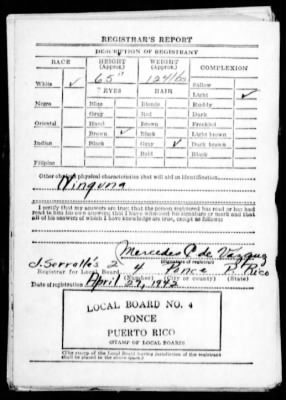 REGISTRAR'S REPORT
DESCRIPTION OF REGISTRANT
RACE HEIGHT (Approx.) WEIGHT (Approx.) COMPLEXION
65" 124 lbs
White ✓ EYES HAIR Sallow
Light ✓
Negro Blue Blonde Ruddy
Gray Red Dark
Oriental Hazel Brown Freckled
Brown ✓ Black Light brown
Indian Black Gray ✓ Dark brown
Bald Black
Filipino
Other obvious physical characteristics that will aid in identification
Ninguna
I certify that my answers are true; that the person registered has read or has had
read to him his own answers; that I have witnessed his signature or mark and that
all of his answers of which I have knowledge are true, except as follows:
Mercedes P. de Vazquez
(Signature of registrar)
J. Serrallés 2 4 Ponce P. Rico
Registrar for Local Board (Number) (City or county) (State)
Date of registration April 27, 1942
LOCAL BOARD NO. 4
PONCE
PUERTO RICO
(STAMP OF LOCAL BOARD)
(The stamp of the Local Board having jurisdiction of the registrant
shall be placed in the above space.)